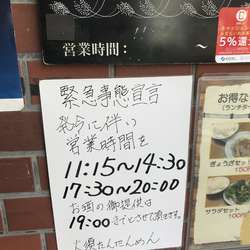 営業時間:
～
5%還
緊急事態宣言
発令に伴い
営業時間を
11:15～14:30
17:30～20:00
お酒の御提供は
19:00までとさせて頂きます。
お得な
(ランチタ
ぎょうざセット
150円
サラダセット